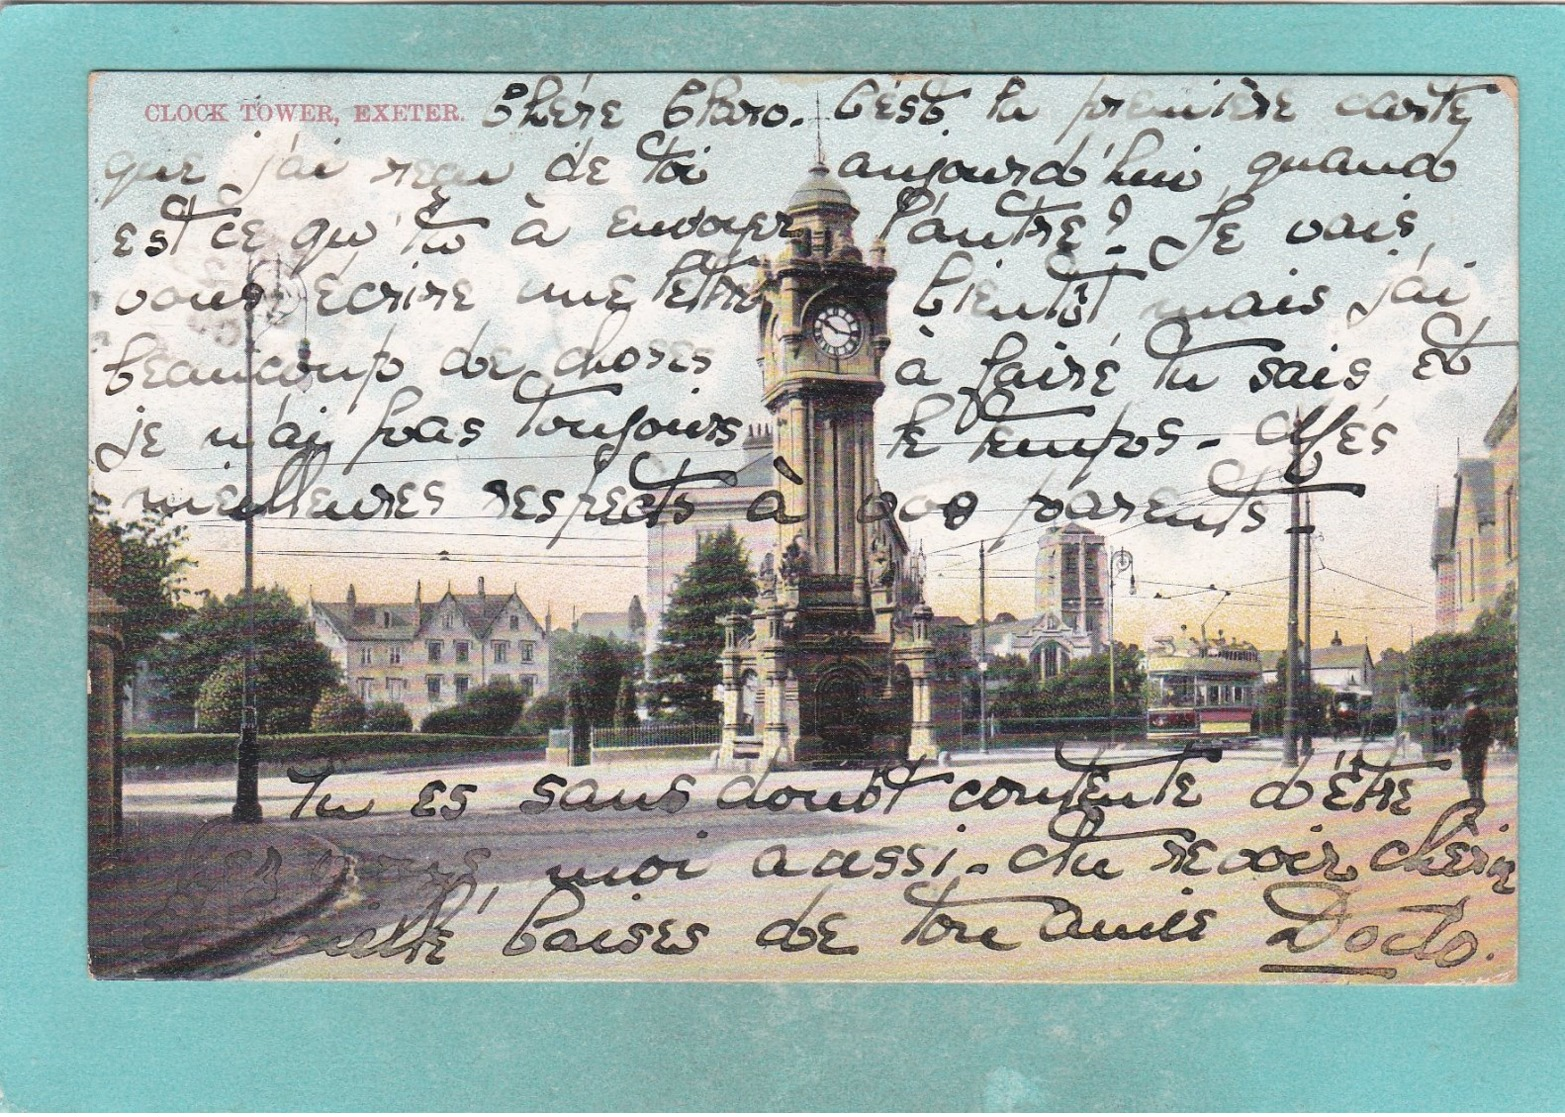 CLOCK TOWER, EXETER.
Chère Claro. C'est la première carte
que j'ai reçu de toi aujourd'hui, quand
est ce qu'tu à envoyer l'autre? Je vais
vous écrire une lettre bientôt mais j'ai
beaucoup de choses à faire tu sais et
je n'ai pas toujours le temps - Mes
meilleures respects à vos parents -
Tu es sans doubt contente d'être
moi aussi - Au revoir
baises de ton amie Dodo.